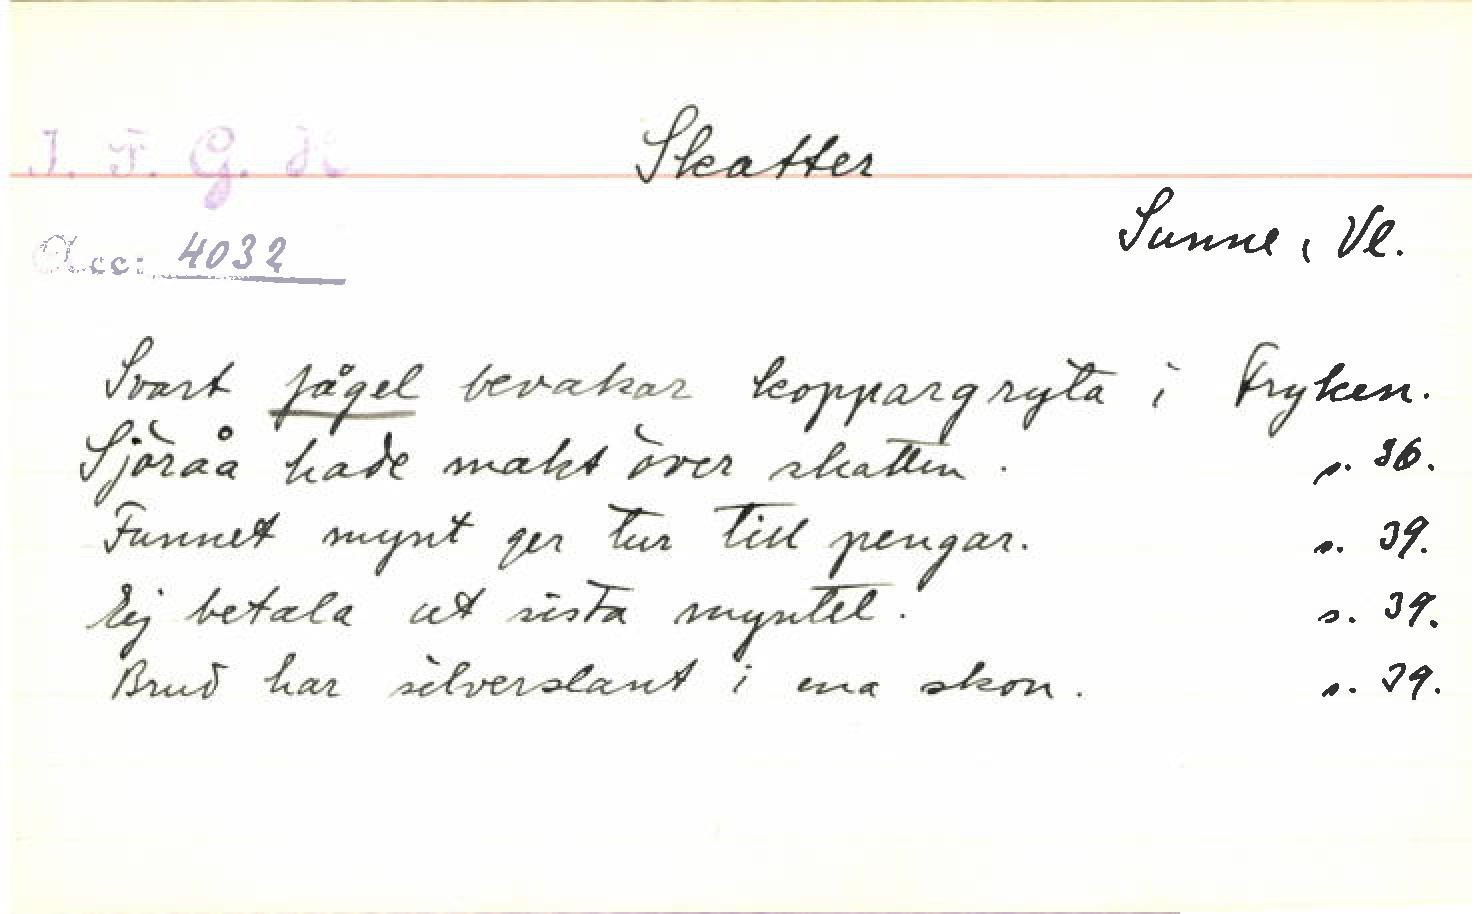 I. F. G. H
Skatter
Sunne, Vl.
Acc: 4032
Svart fågel bevakar koppargryta i Fryken.
Sjöråa hade makt över skatten. s. 36.
Funnet mynt ger tur till pengar. s. 39.
Ej betala ut sista myntet. s. 39.
Brud har silverslant i ena skon. s. 39.